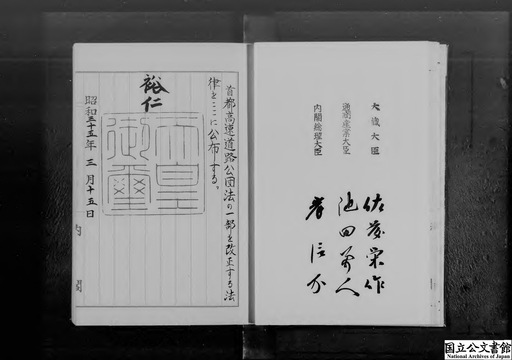 首都高速道路公団法の一部を改正する法
律をここに公布する。
裕仁
天皇
御璽
昭和三十五年三月十五日
内閣
大蔵大臣 佐藤栄作
通商産業大臣 池田勇人
内閣総理大臣 岸信介
国立公文書館
National Archives of Japan